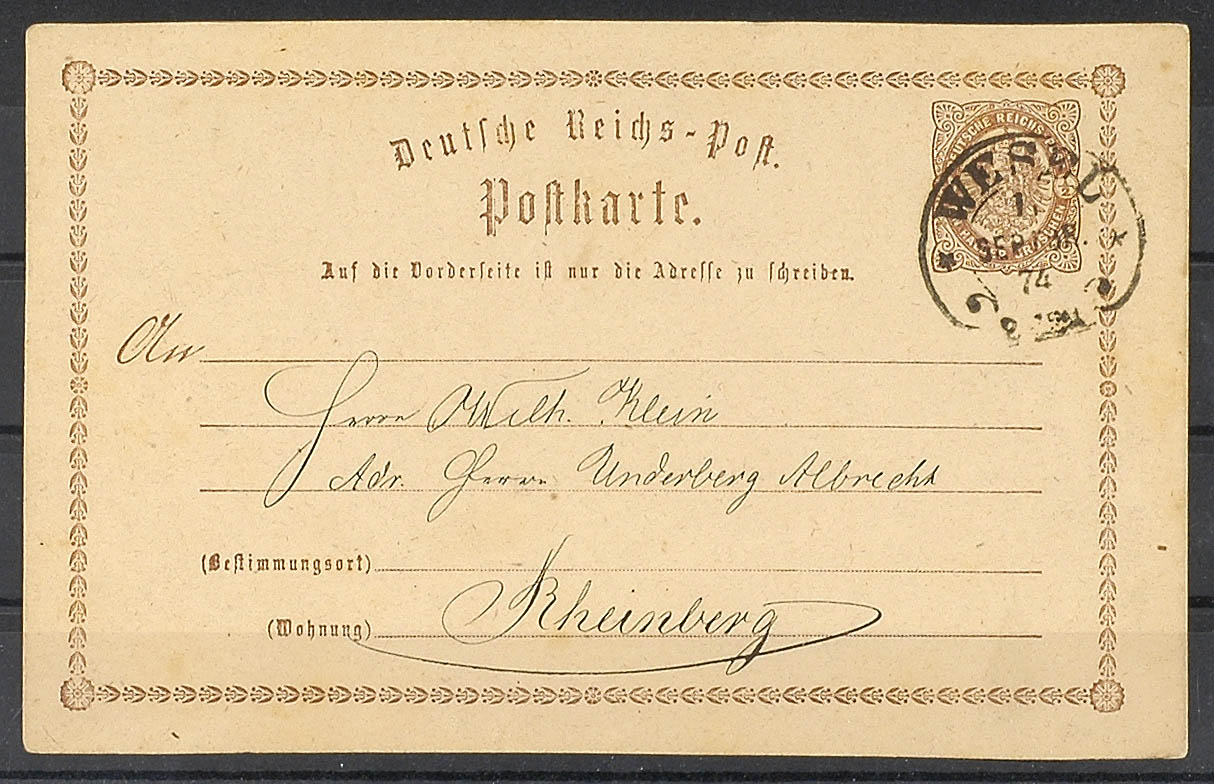 Deutsche Reichs-Post.
Postkarte.
Auf die Vorderseite ist nur die Adresse zu schreiben.
DEUTSCHE REICHS-
WESEL
SEPTBR.
74
An
Herrn Wilh. Klein
Adr. Herrn Underberg Albrecht
(Bestimmungsort)
Rheinberg
(Wohnung)